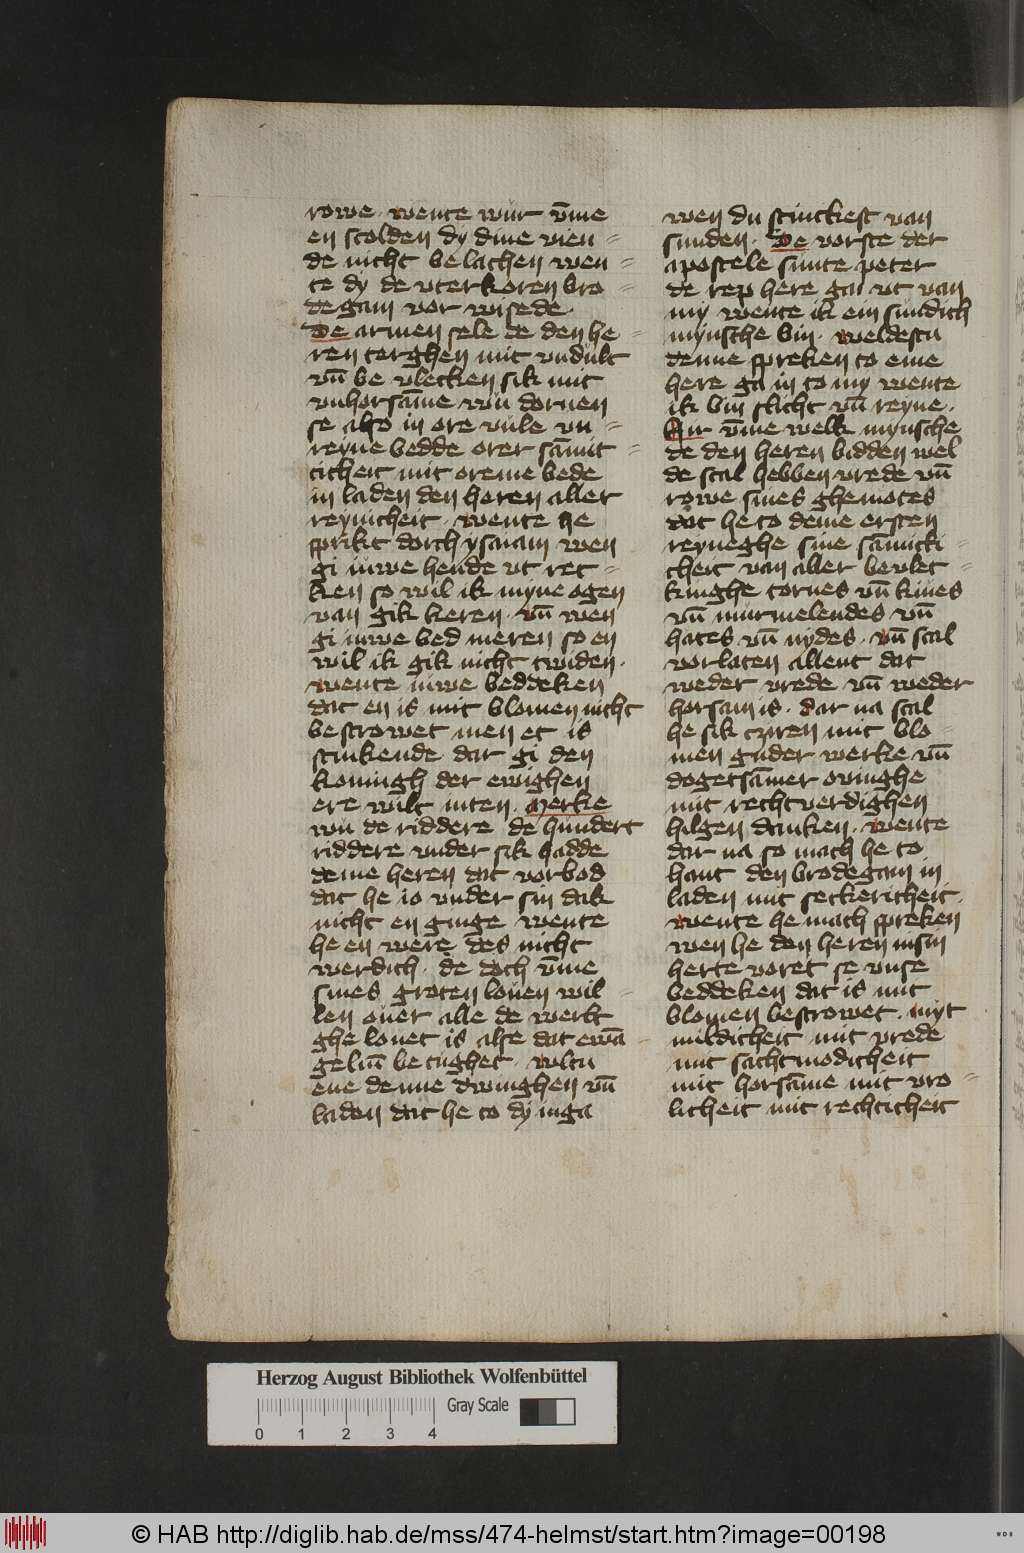 rowe · wente wur v̄me
en scolden dy dine vien=
de nicht be lachen wen=
te dy de vterkoren bro=
degam vor wisede ·
De armen sele de den he=
ren torghen mit vndult
vn̄ be vlecken sik mit
vnhorsāme wū dornen
se also in ore vule vn=
reyne bedde orer sāmit=
ticheit mit oreme bede
in laden den heren aller
reynicheit · wente he
sprikt dorch ysaiam wen
gi iuwe hende vt rec=
ken so wil ik myne ogen
van gik keren · vn̄ wen
gi iuwe bed meren so en
wil ik gik nicht twiden ·
wente iuwe beddeken
dat en is mit blomen nicht
bestrowet men et is
stinkende dar gi den
koningh der ewighen
ere wilt inten · Merke
wu de riddere de hundert
riddere vnder sik hadde
deme heren dat vorbod
dat he io vnder sin dak
nicht en ginge wente
he en were des nicht
werdich · de doch v̄me
sines groten louen wil=
len ouer alle de werlt
ghe louet is alse dat ewā=
geliū be tughet · wltu
ene denne dwinghen vn̄
laden dat he to dy inga
wen du stinckest van
sunden · De vorste der
apostele sunte peter
de rep here ga vt van
my wente ik ein sundich
mynsche bin · weldestu
denne spreken to eme
here ga in to my wente
ik bin slicht vn̄ reyne ·
Aur v̄me welk mynsche
de den heren bidden wel
de scal hebben vrede vn̄
rowe sines ghemotes
dat he to deme ersten
reyneghe sine sāmicki=
cheit van aller bevlec=
kinghe tornes vn̄ kiues
vn̄ murmelendes vn̄
hates vn̄ nydes · vn̄ scal
vorlaten allent dat
weder vrede vn̄ weder
horsam is · dar na scal
he sik cziren mit blo=
men guder werke vn̄
dogetsāmer ouinghe
mit rechtverdighen
hilgen danken · wente
dar na so mach he to
hant den brodegam in
laden mit seckericheit ·
wente he mach spreken
wen he den heren in sin
herte voret se vnse
beddeken dat is mit
blomen bestrowet · myt
mildicheit mit vrede
mit sachtmodicheit
mit horsāme mit vro=
licheit mit rechticheit
Herzog August Bibliothek Wolfenbüttel
Gray Scale
0 1 2 3 4
© HAB http://diglib.hab.de/mss/474-helmst/start.htm?image=00198